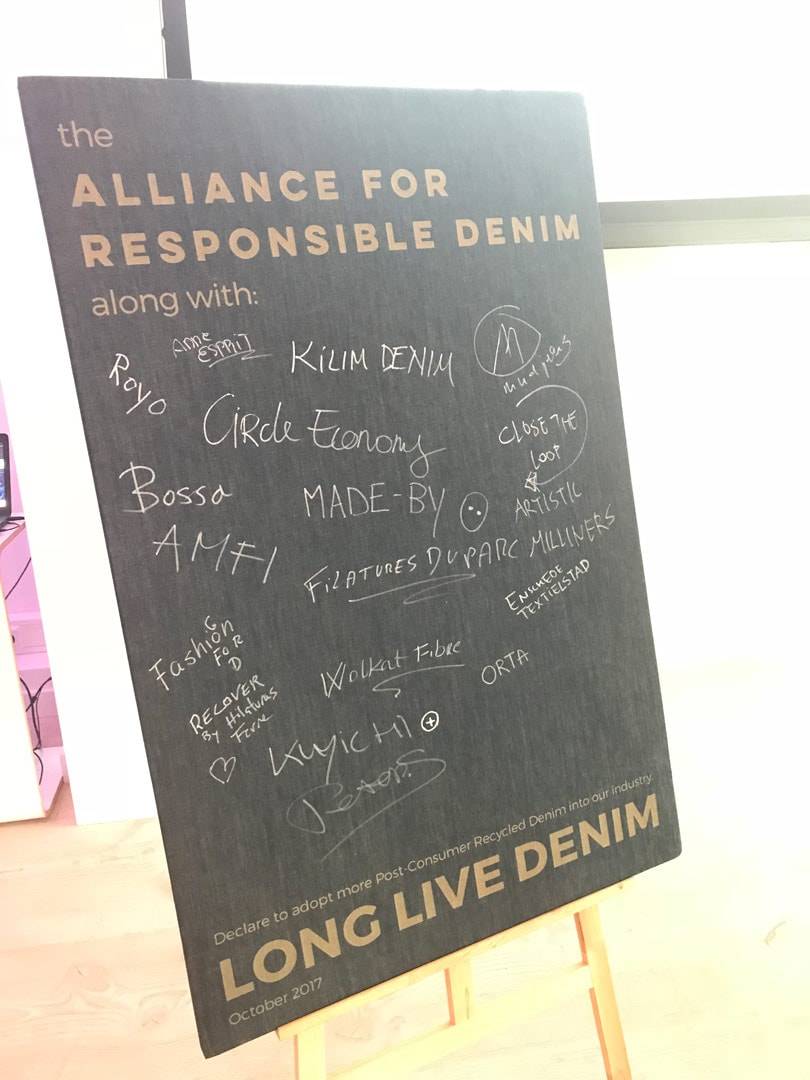 the
ALLIANCE FOR
RESPONSIBLE DENIM
along with:
Royo
ESPRIT
KILIM DENIM
M
mud jeans
CIRCLE ECONOMY
CLOSE THE
LOOP
Bossa
MADE-BY
ARTISTIC
MILLINERS
AMFI
FILATURES DU PARC
ENSCHEDE
TEXTIELSTAD
Fashion
FOR
GOOD
Wolkat Fibre
ORTA
RECOVER
By Hilaturas
Ferre
KUYICHI
Declare to adopt more Post-Consumer Recycled Denim into our industry.
LONG LIVE DENIM
October 2017